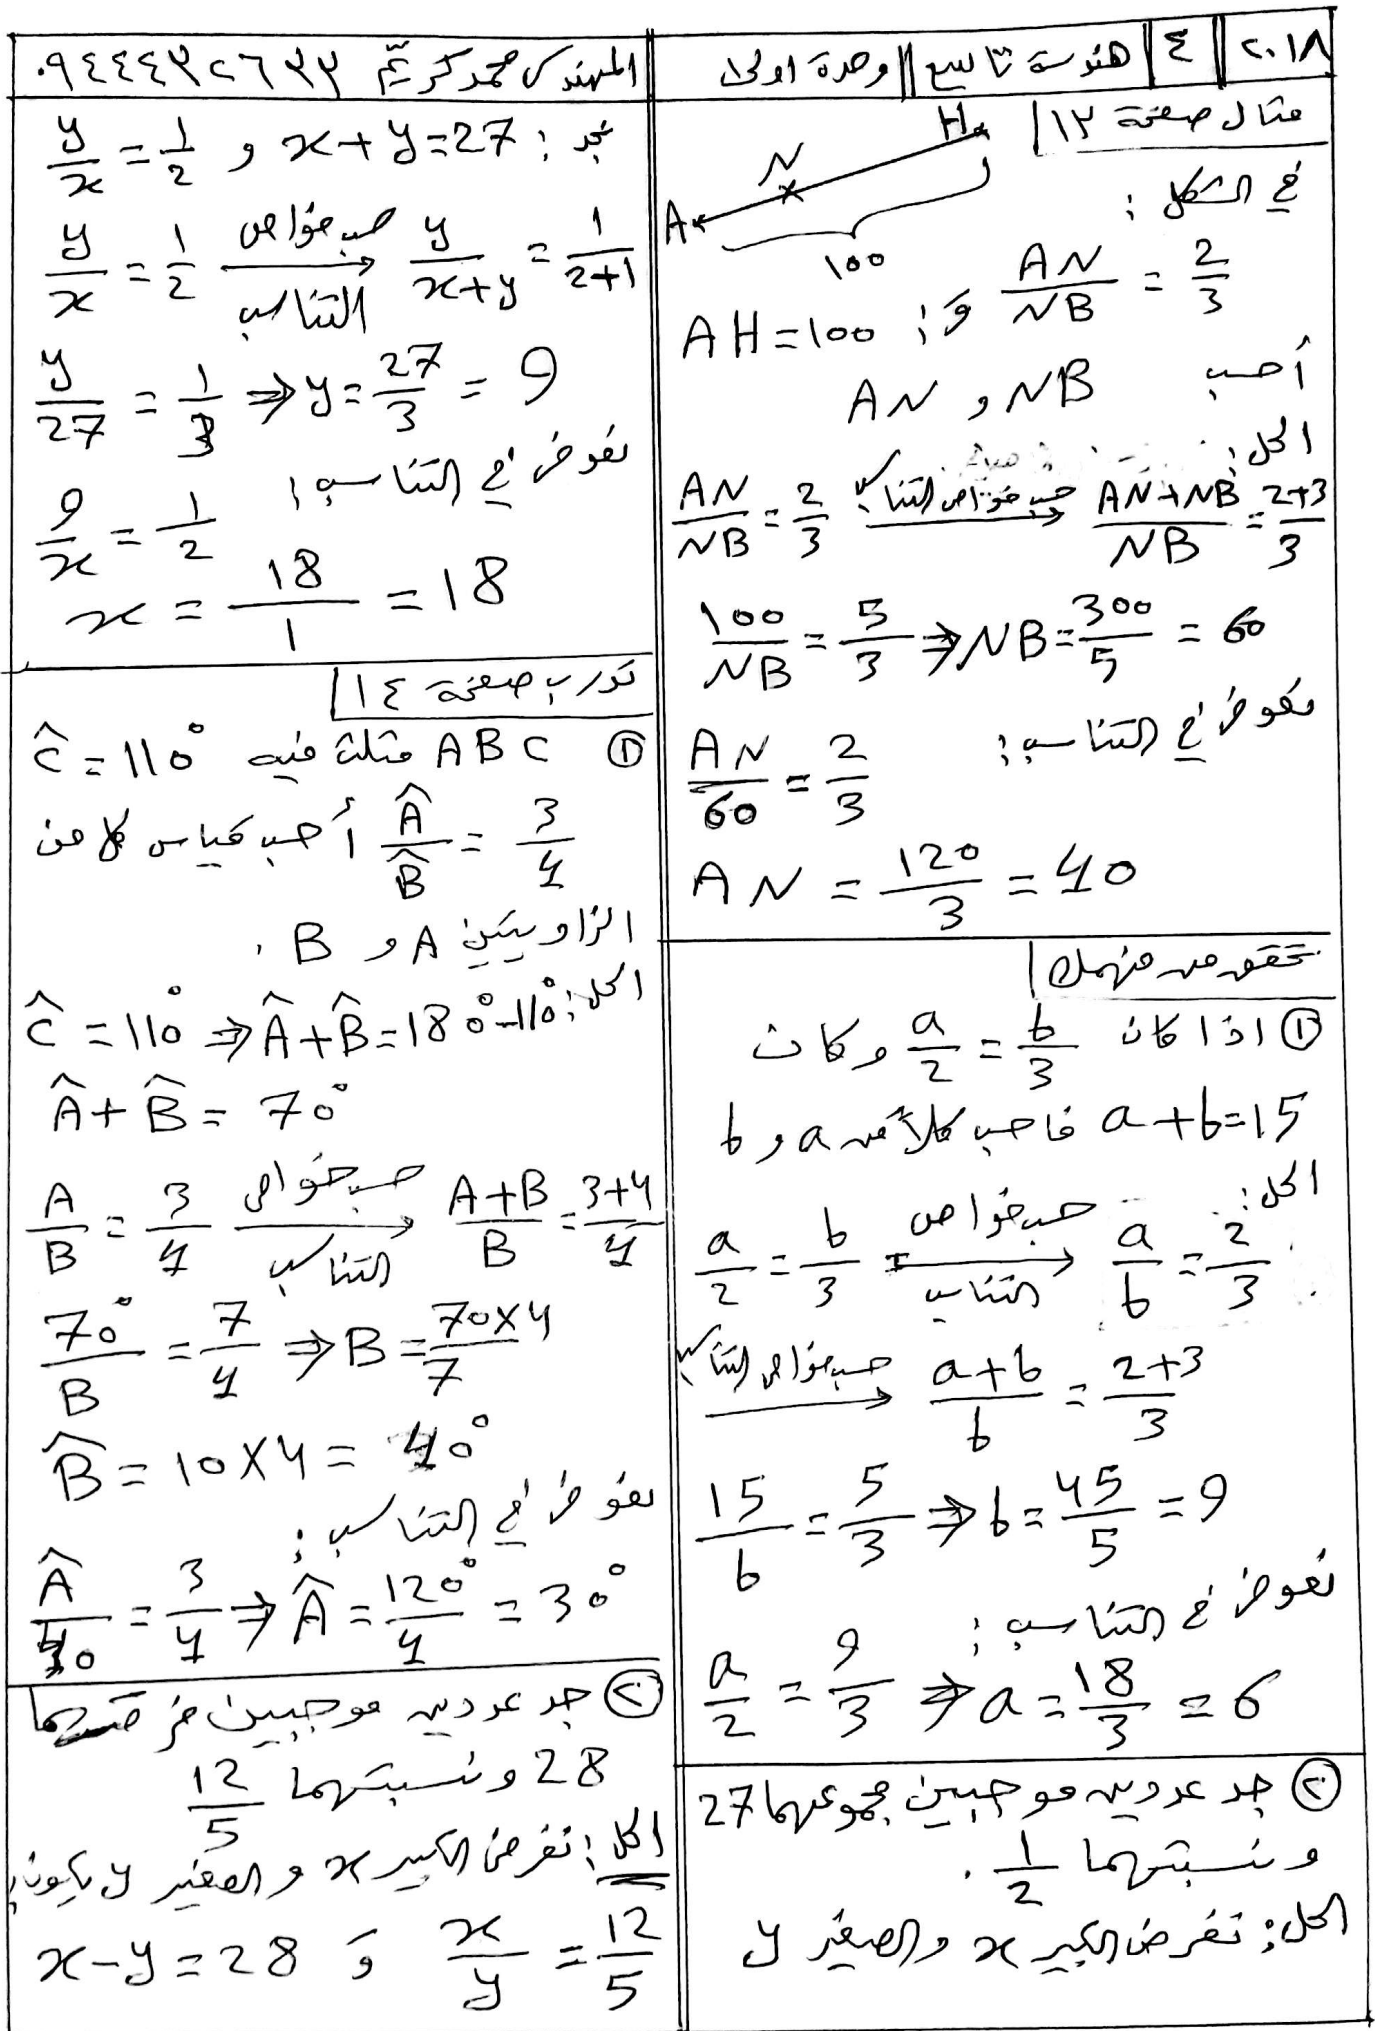 ٢٠١٨ || ٤ | هندسة تاسع || وحدة اولى
المهندس محمد كريّم ٠٩٤٤٤٣٢٦٣٣
مثال صفحة ١٣
H
N
A
100
في الشكل :
AN/NB = 2/3 و : AH = 100
أحسب AN و NB
الحل :
AN/NB = 2/3 حسب خواص التناسب → AN+NB/NB = 2+3/3
100/NB = 5/3 ⇒ NB = 300/5 = 60
نعوض في التناسب :
AN/60 = 2/3
AN = 120/3 = 40
تحقق من فهمك
① اذا كان a/2 = b/3 وكان
a+b=15 فاحسب كلاً من a و b
الحل :
a/2 = b/3 حسب خواص التناسب → a/b = 2/3
حسب خواص التناسب → a+b/b = 2+3/3
15/b = 5/3 ⇒ b = 45/5 = 9
نعوض في التناسب :
a/2 = 9/3 ⇒ a = 18/3 = 6
② جد عددين موجبين مجموعهما 27
ونسبتهما 1/2 .
الحل : نفرض الكبير x والصغير y
نجد : x+y=27 و y/x = 1/2
y/x = 1/2 حسب خواص التناسب → y/x+y = 1/2+1
y/27 = 1/3 ⇒ y = 27/3 = 9
نعوض في التناسب :
9/x = 1/2
x = 18/1 = 18
تدرب صفحة ١٤
① ABC مثلث فيه Ĉ = 110°
Â/B̂ = 3/4 أحسب قياس كلا من
الزاويتين A و B .
الحل : Ĉ = 110° ⇒ Â+B̂ = 180°-110°
Â+B̂ = 70°
A/B = 3/4 حسب خواص التناسب → A+B/B = 3+4/4
70°/B = 7/4 ⇒ B = 70×4/7
B̂ = 10×4 = 40°
نعوض في التناسب :
Â/40 = 3/4 ⇒ Â = 120°/4 = 30°
② جد عددين موجبين
28 ونسبتهما 12/5
الحل : نفرض الكبير x والصغير y يكون :
x/y = 12/5 و x-y=28